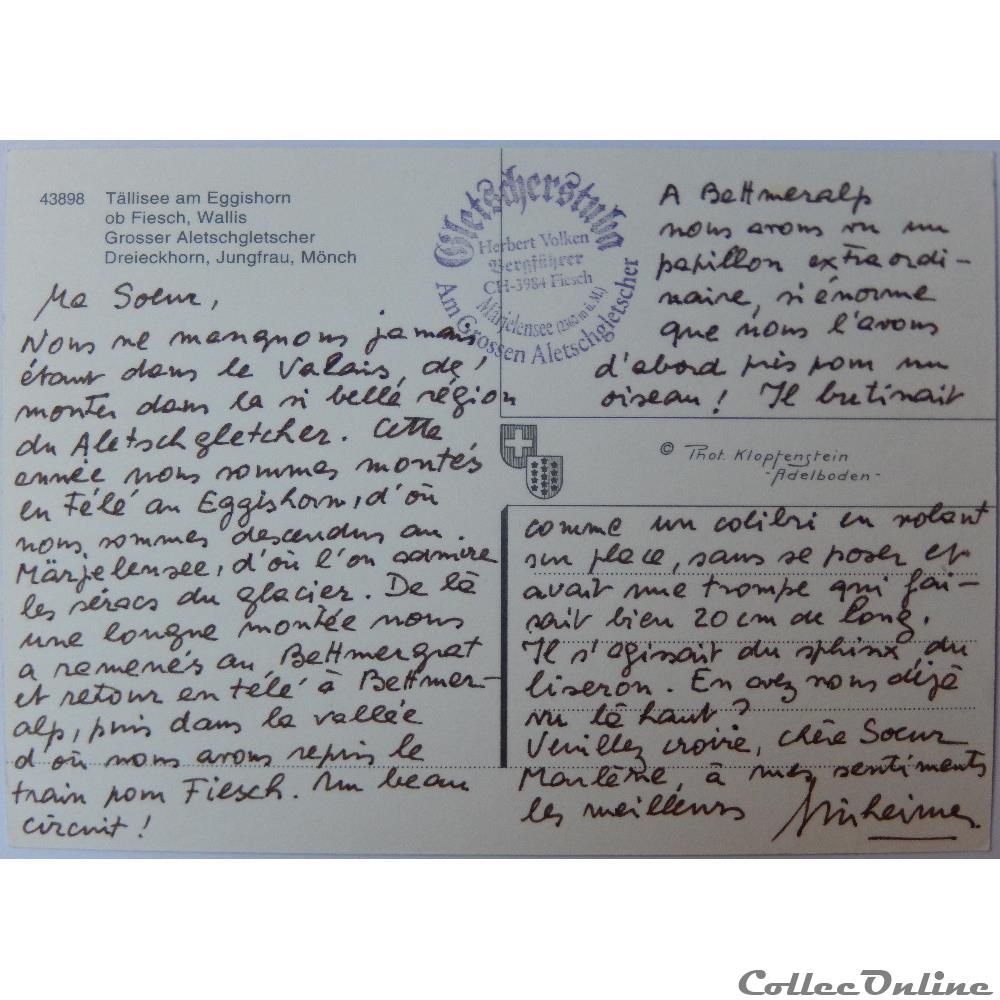 43898 Tällisee am Eggishorn
ob Fiesch, Wallis
Grosser Aletschgletscher
Dreieckhorn, Jungfrau, Mönch
Gletscherstuba
Herbert Volken
Bergführer
CH-3984 Fiesch
Märjelensee
Am Grossen Aletschgletscher
Ma Soeur,
Nous ne manquons jamais,
étant dans le Valais, de
monter dans la si belle région
du Aletschgletcher. Cette
année nous sommes montés
en télé au Eggishorn, d'où
nous sommes descendus au
Märjelensee, d'où l'on admire
les séracs du glacier. De là
une longue montée nous
a ramenés au Bettmergrat
et retour en télé à Bettmer-
alp, puis dans la vallée
d'où nous avons repris le
train pour Fiesch. Un beau
circuit !
A Bettmeralp
nous avons vu un
papillon extraordi-
naire, si énorme
que nous l'avons
d'abord pris pour un
oiseau ! Il butinait
© Phot. Klopfenstein
- Adelboden -
comme un colibri en volant
sur place, sans se poser et
avait une trompe qui fai-
sait bien 20 cm de long.
Il s'agissait du sphinx du
liseron. En avez vous déjà
vu là haut ?
Veuillez croire, chère Soeur
Marlène, à mes sentiments
les meilleurs
CollecOnline